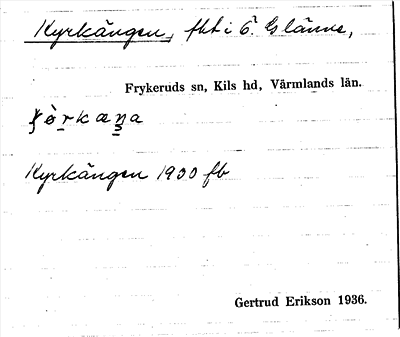 Kyrkängen, fkt i 6. Glänne,
Frykeruds sn, Kils hd, Värmlands län.
Kyrkängen 1900 fb
Gertrud Erikson 1936.